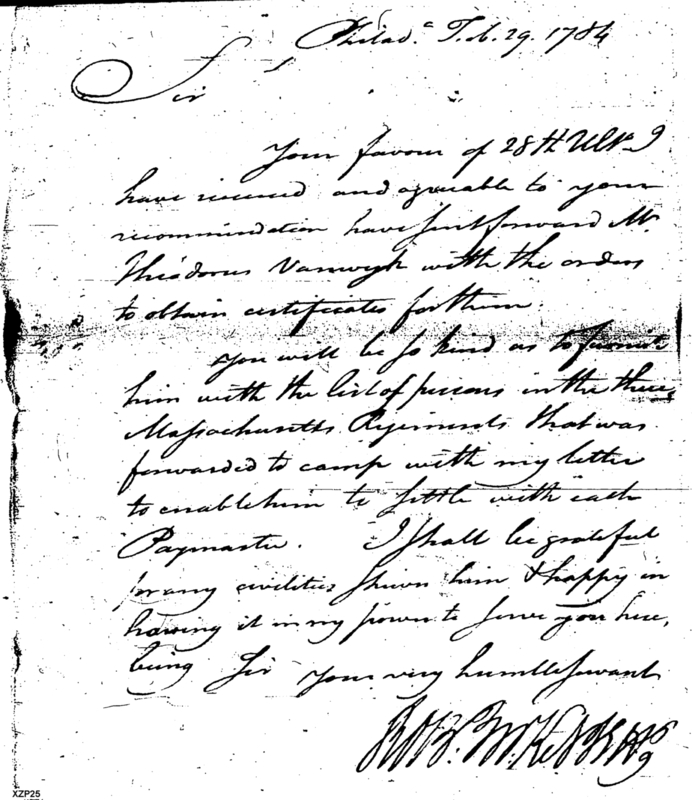 Philad.ᵃ Feb. 29. 1784
Sir
Your favour of 28th Ulto. I
have received and agreeable to your
recommendation have sent forward Mr.
Theodorus Vanwyk with the orders
to obtain certificates for them.
You will be so kind as to furnish
him with the list of persons in the three
Massachusetts Regiments that was
forwarded to camp with my letter
to enable him to settle with each
Paymaster. I shall be grateful
for any civilities shewn him & happy in
having it in my power to serve you here,
being Sir your very humble servant
XZP25